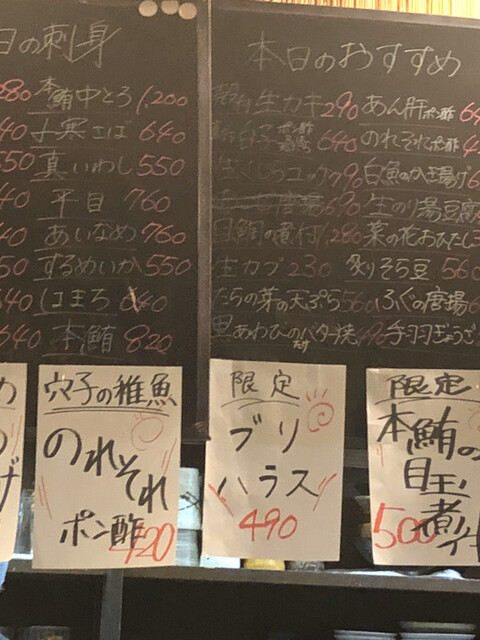 日の刺身
280 本鮪中とろ 1,200
40 よ寒さば 640
550 真いわし 550
40 平目 760
40 あいなめ 760
50 するめいか 550
40 ほまち 640
640 本鮪 820
本日のおすすめ
生カキ 290
白子 ポン酢 640
生くじらユッケ 790
唐揚 690
目鯛の煮付 1,280
生カブ 230
たらの芽の天ぷら
黒あわびのバター焼
あん肝ポン酢
のれそれポン酢
白魚のかき揚げ
生のり湯豆腐
菜の花おひたし
炙りそら豆 560
ふぐの唐揚
手羽ぎょうざ
穴子の稚魚
のれそれ
ポン酢 420
限定
ブリ
ハラス
490
限定
本鮪の
目玉
煮付
500